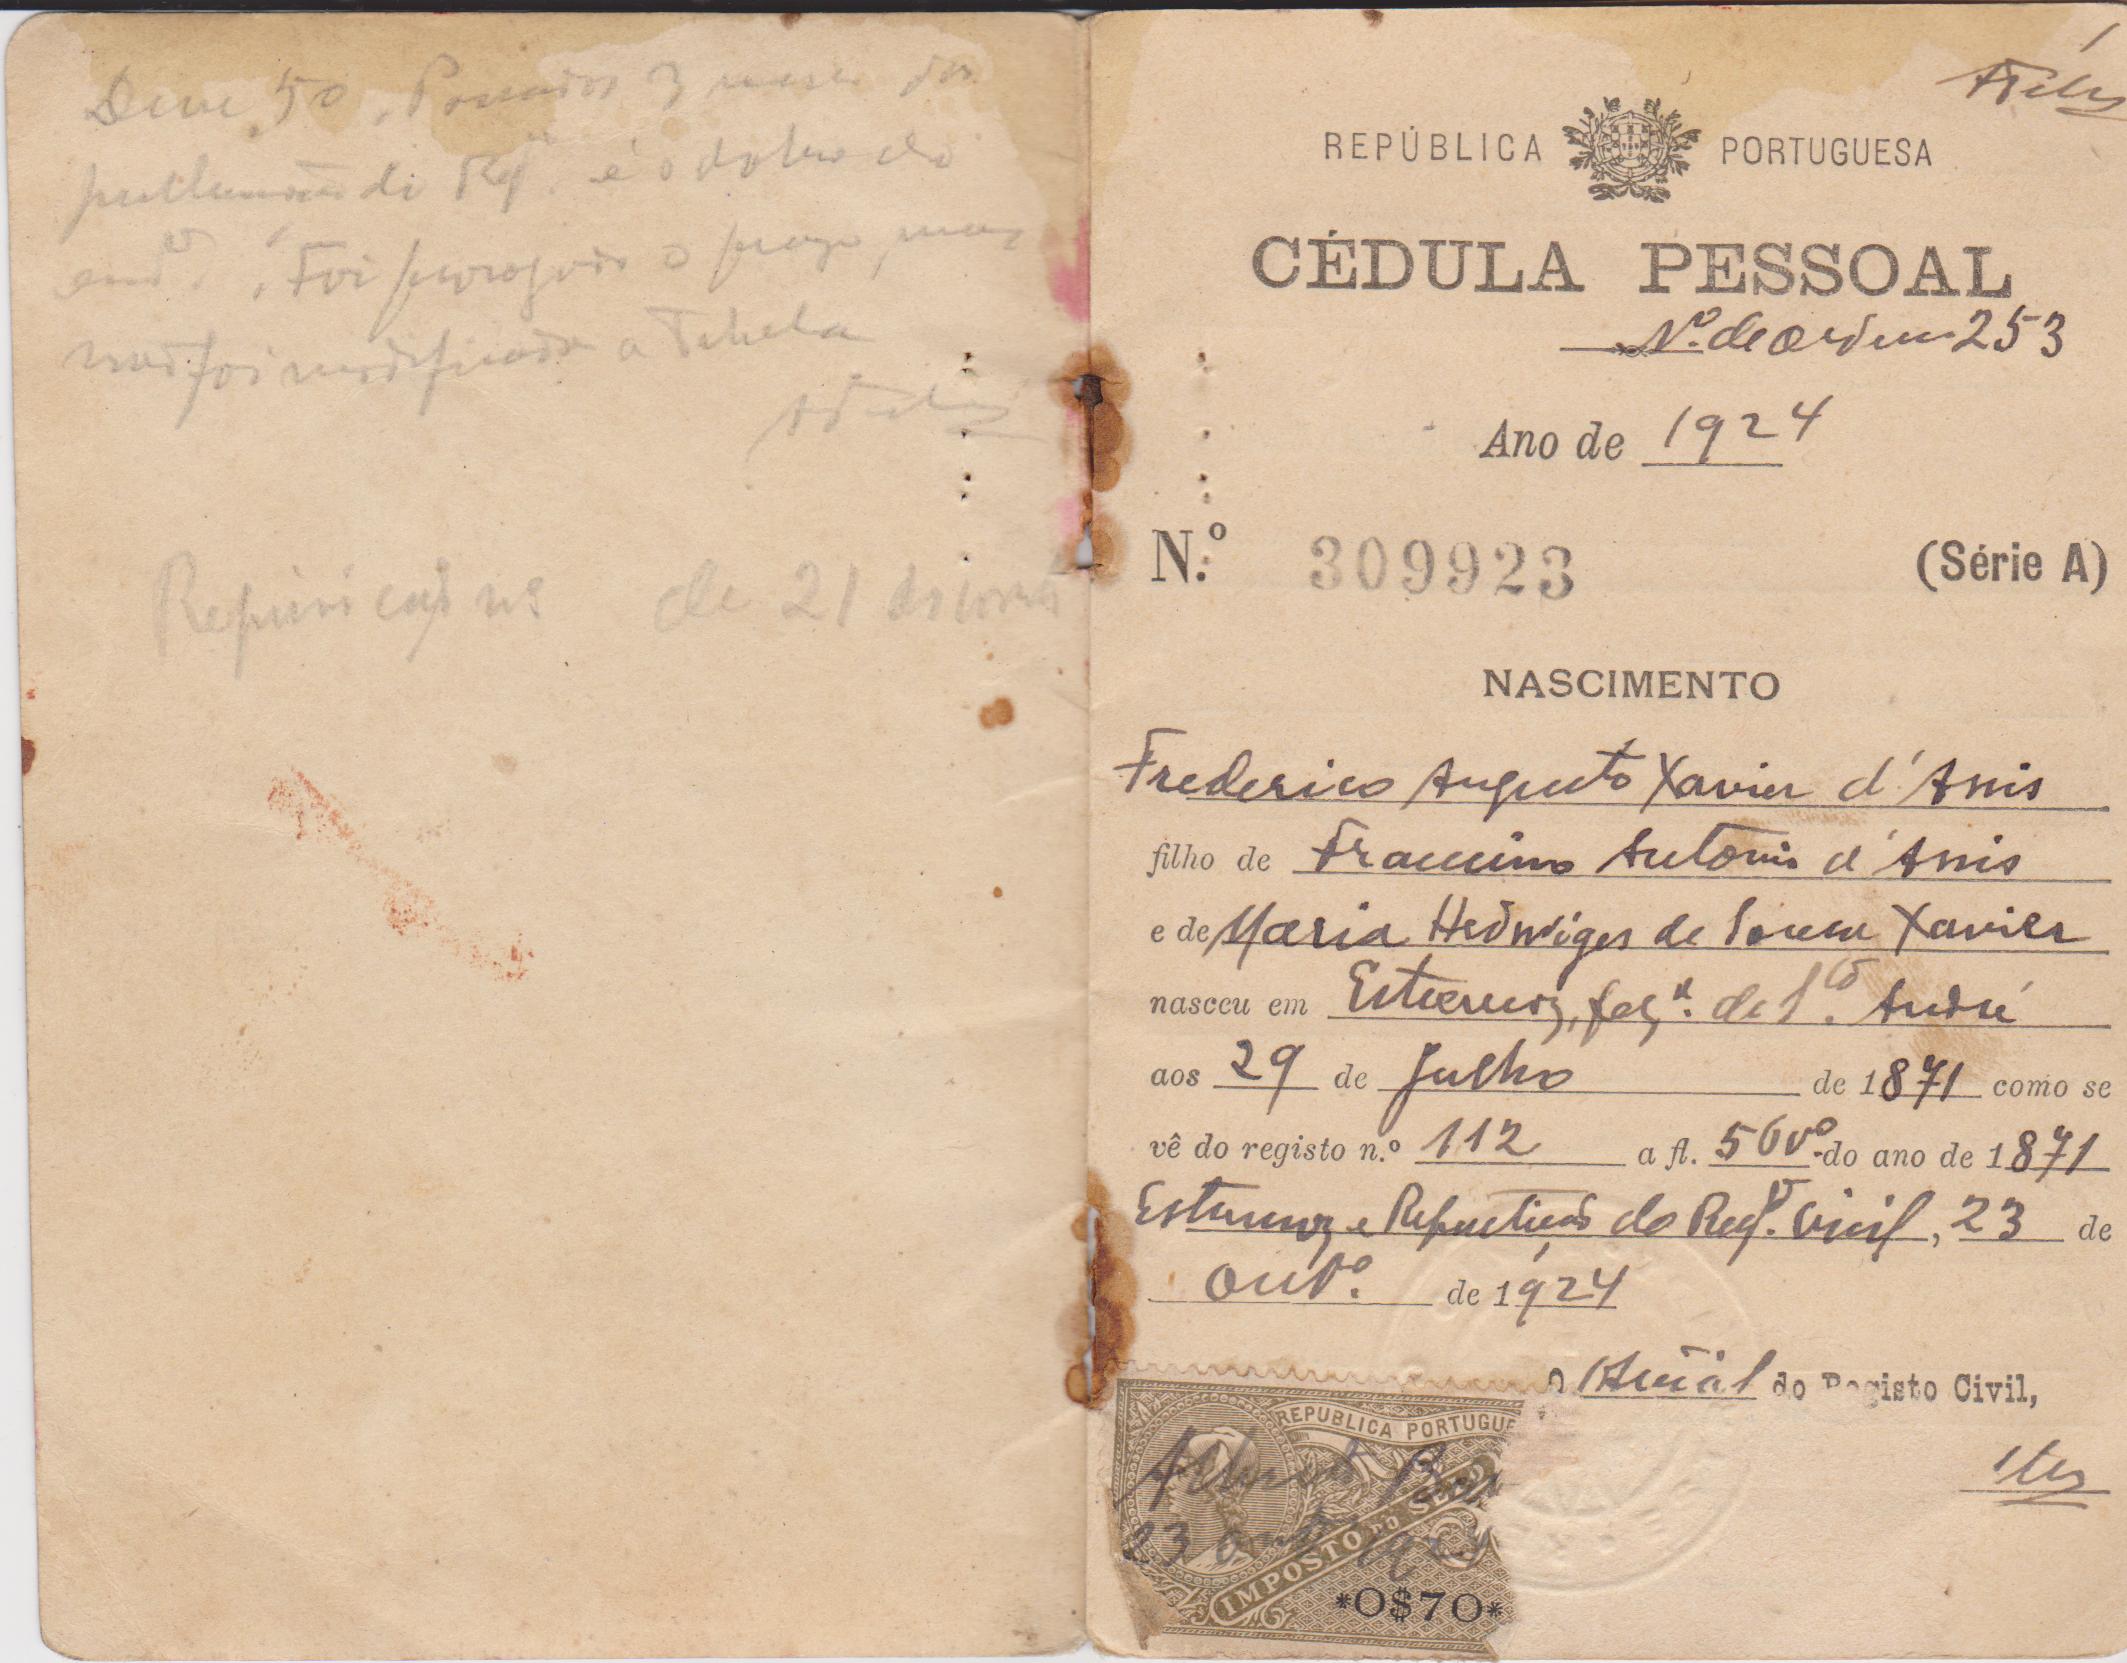 Deve 50. Passados 3 meses da
publicação do Regº. é o dobro do
. Foi prorogado o prazo, mas
não foi modificada a Tabela
de 21 de
REPÚBLICA PORTUGUESA
CÉDULA PESSOAL
Nº. de ordem 253
Ano de 1924
N.º 309923 (Série A)
NASCIMENTO
Frederico Augusto Xavier d'Assis
filho de Francisco Antonio d'Assis
e de Maria Hedwiges de Sousa Xavier
nasceu em Estremoz, fegª. de Stº. André
aos 29 de Julho de 1871 como se
vê do registo n.º 112 a fl. 56vº. do ano de 1871
Estremoz e Repartição do Regº. Civil, 23 de
Outº. de 1924
O Oficial do Registo Civil,
REPUBLICA PORTUGUE
IMPOSTO DO SELO
23
*0$70*